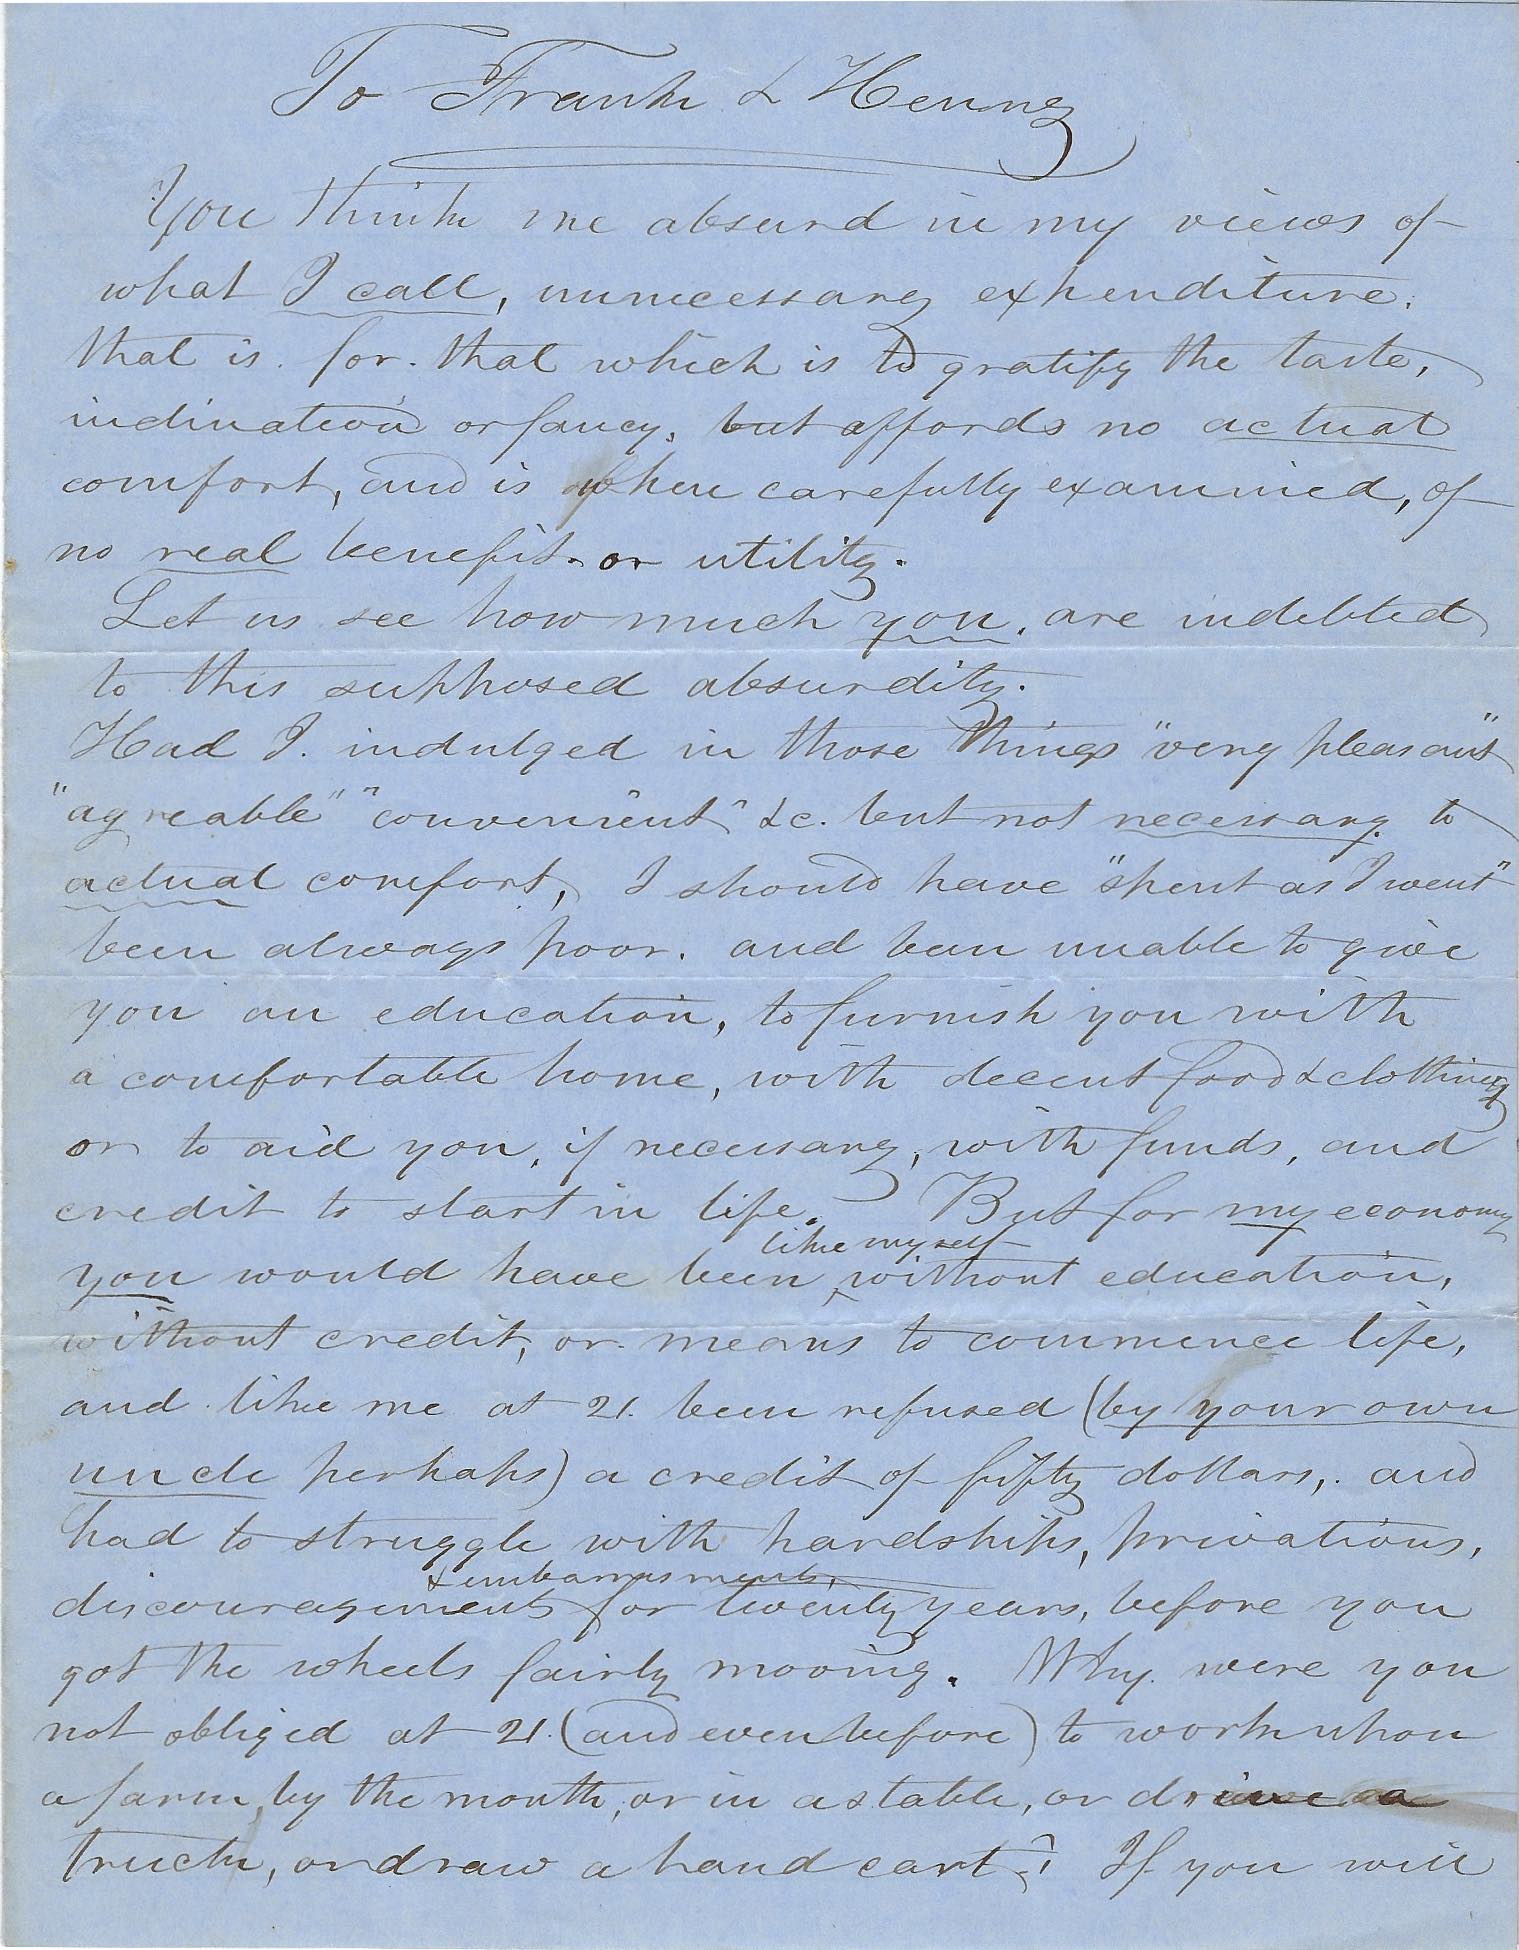 To Frank & Henry
You think me absurd in my views of
what I call, unnecessary expenditure.
that is. for. that which is to gratify the taste,
inclination or fancy, but affords no actual
comfort, and is when carefully examined, of
no real benefit. or utility.
Let us see how much you, are indebted
to this supposed absurdity.
Had I. indulged in those things "very pleasant"
"agreable" "convenient" &c. but not necessary to
actual comfort, I should have "spent as I went"
been always poor. and been unable to give
you an education, to furnish you with
a comfortable home, with decent food & clothing
or to aid you, if necessary, with funds, and
credit to start in life. But for my economy
like myself
you would have been ‸ without education,
without credit, or means to commence life,
and like me at 21. been refused (by your own
uncle perhaps) a credit of fifty dollars, and
had to struggle with hardships, privations,
& embarrasments,
discouragements for twenty years, before you
got the wheels fairly moving. Why were you
not obliged at 21. (and even before) to work upon
a farm, by the month, or in a stable, or drive a
truck, or draw a hand cart? If you will